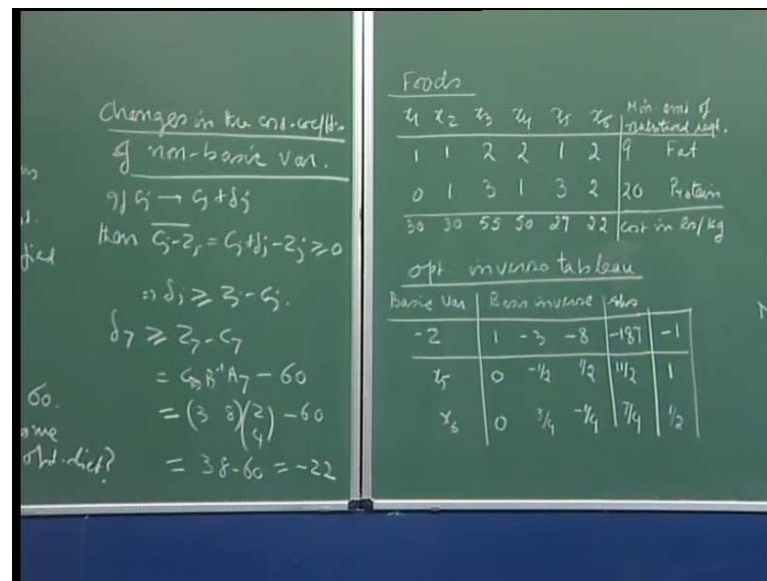 Changes in the cost-coeff.
of non-basic var.
If Cj → Cj + δj
then Cj - Zj = Cj + δj - Zj ≥ 0
⇒ δj ≥ Zj - Cj.
δ7 ≥ Z7 - C7
= CB B⁻¹ A7 - 60
= (3 8)(2 4) - 60
= 38 - 60 = -22
60.
opt. diet?
Foods
x1 x2 x3 x4 x5 x6 Min. amt. of
nutritional reqt.
1 1 2 2 1 2 9 Fat
0 1 3 1 3 2 20 Protein
30 30 55 50 27 22 cost in Rs/kg
opt. inverse tableau
Basic Var Basis inverse rhs
-Z 1 -3 -8 -187 -1
x5 0 -1/2 1/2 11/2 1
x6 0 3/4 -1/4 7/4 1/2